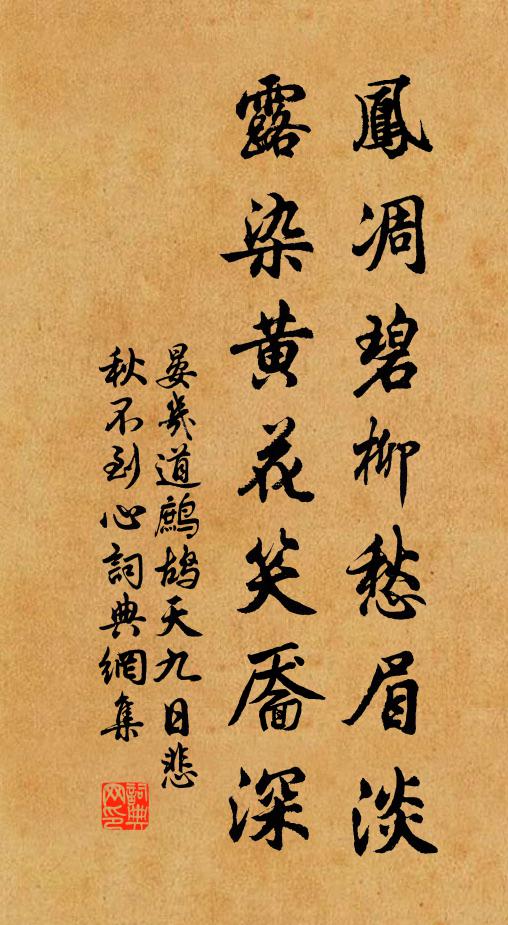 鳳凋碧柳愁眉淡
露染黄花笑靨深
晏幾道鷓鴣天九日悲
秋不到心詞典網集
詞典
网印